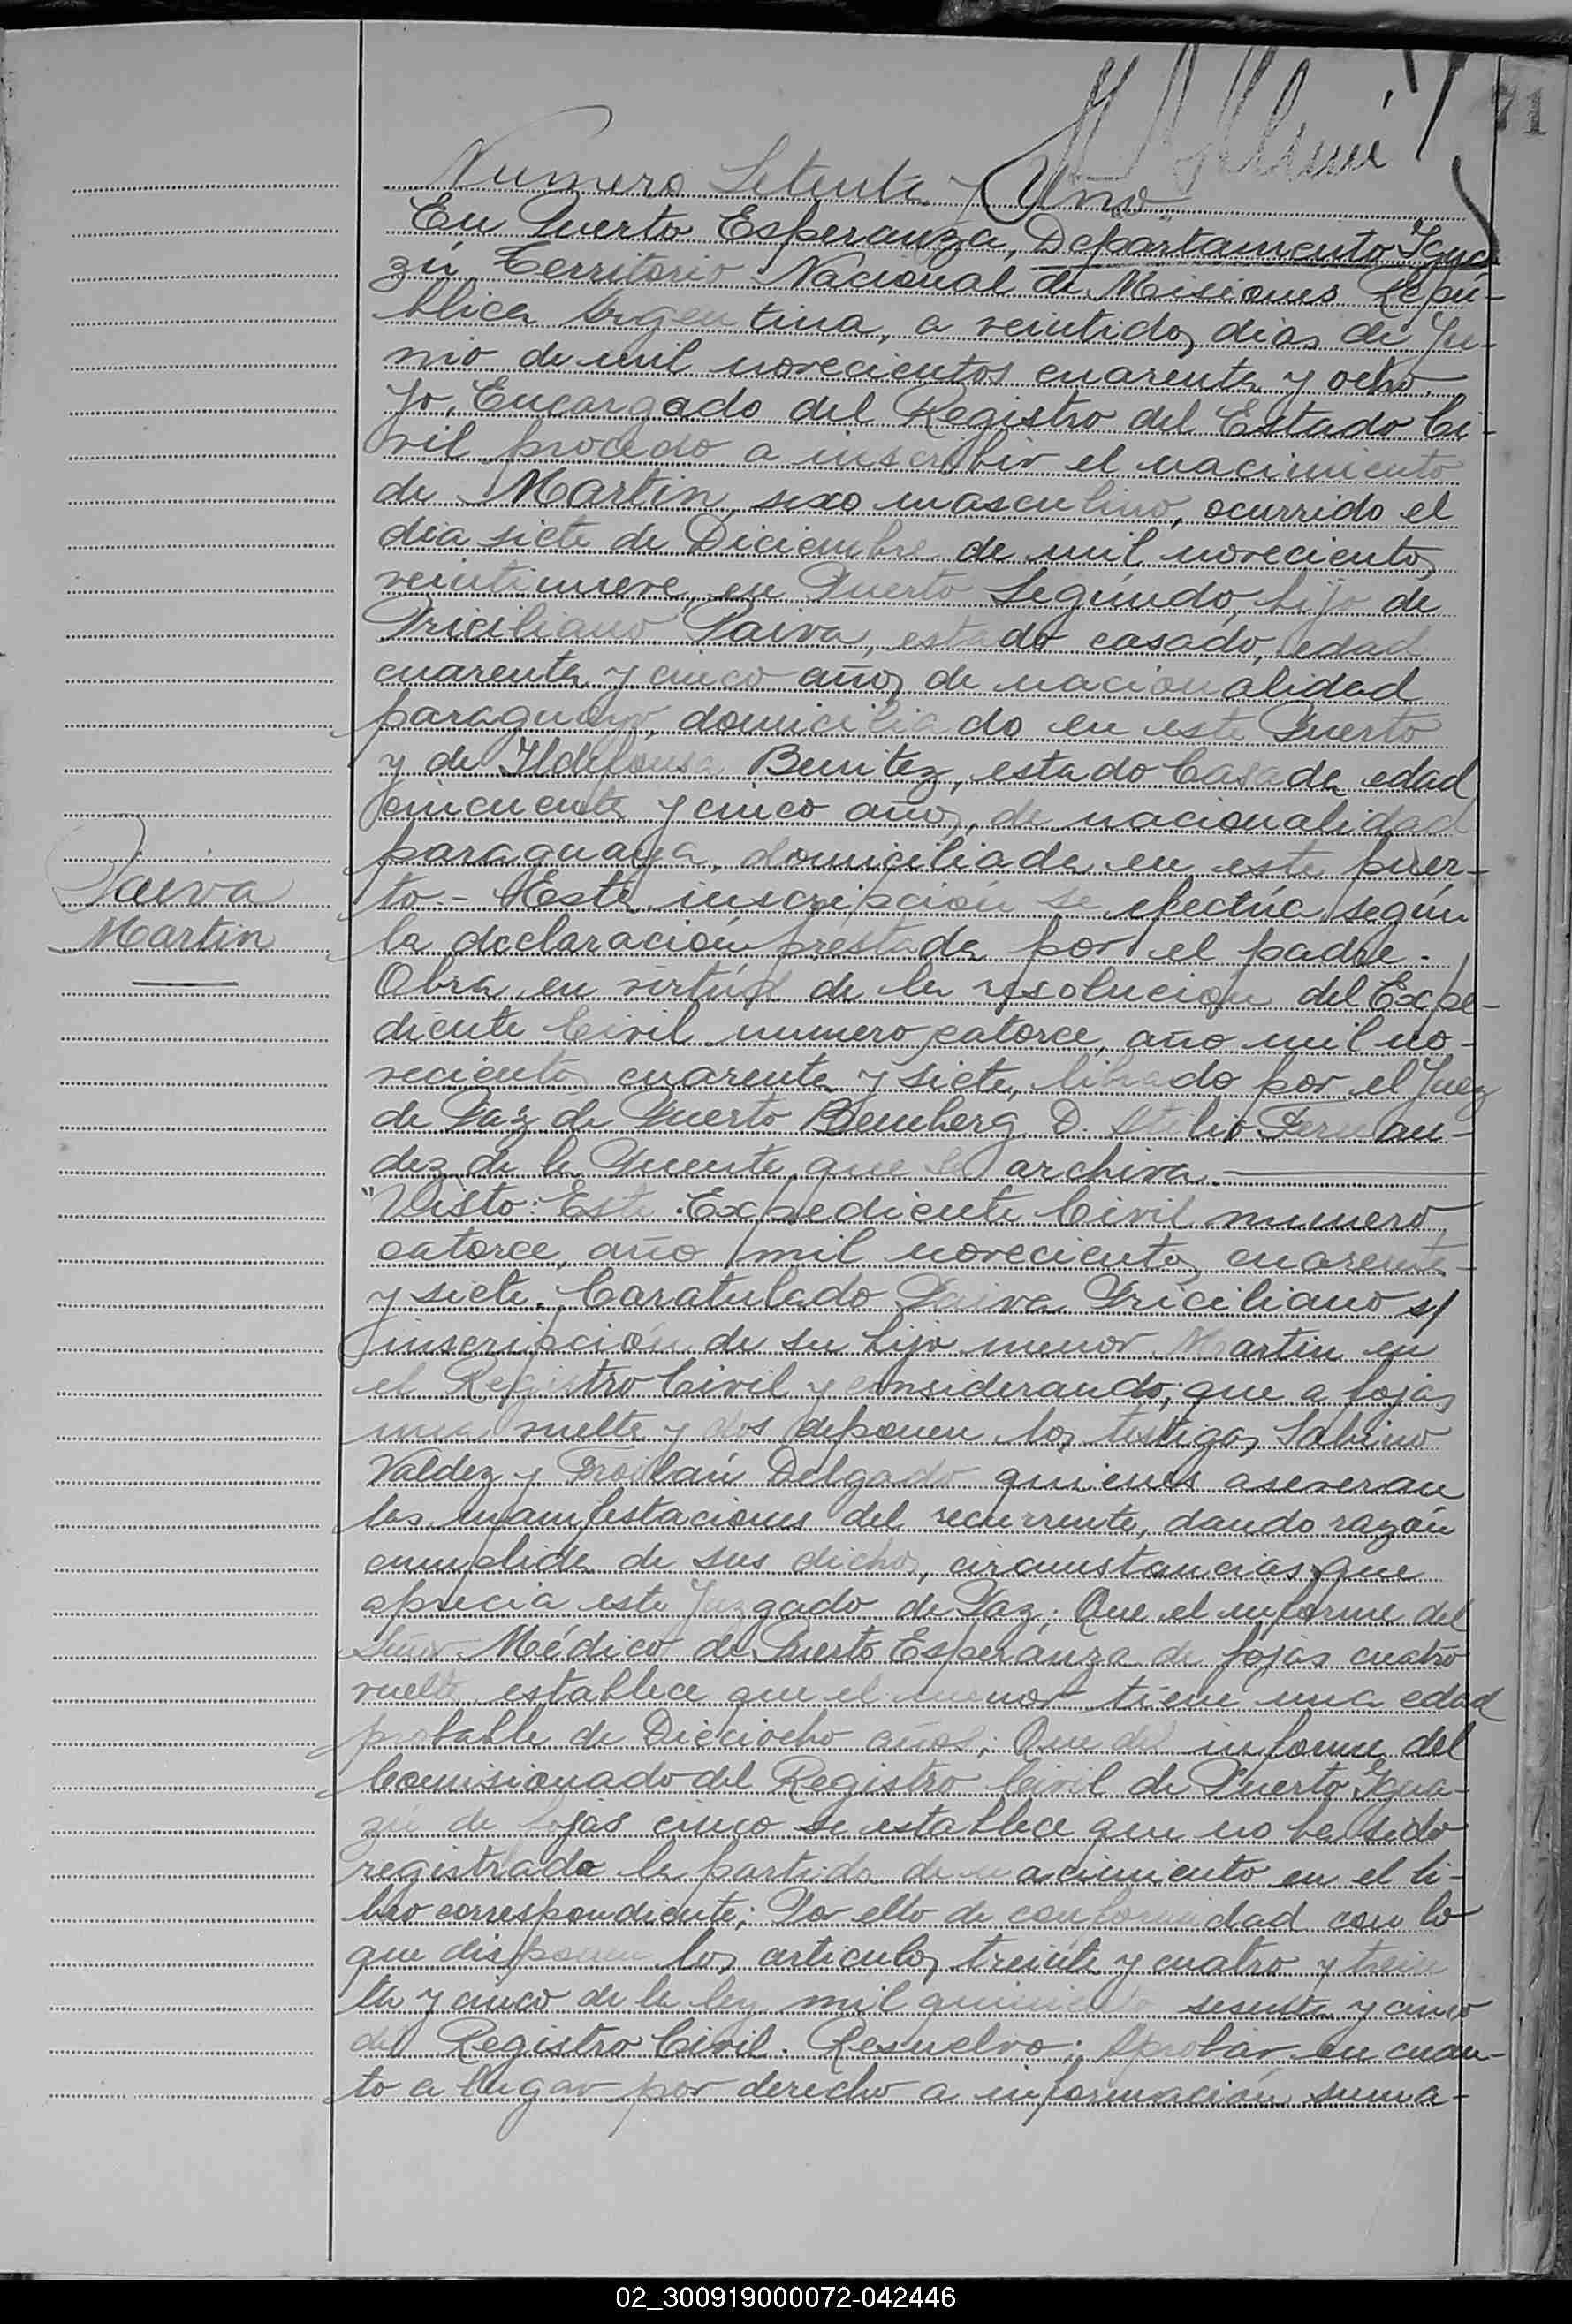 71
Numero Setenta y Uno
En Puerto Esperanza, Departamento Igua
zú, Territorio Nacional de Misiones Repú-
blica Argentina, a veintidos dias de Ju-
nio de mil novecientos cuarenta y ocho,
Yo, Encargado del Registro del Estado Ci-
vil procedo a inscribir el nacimiento
de Martin, sexo masculino, ocurrido el
dia siete de Diciembre de mil novecientos
veintinueve, en Puerto Segundo, hijo de
Priciliano Paiva, estado casado, edad
cuarenta y cinco años, de nacionalidad
paraguayo, domiciliado en este Puerto
y de Ildefonsa Benitez, estado Casada edad
cincuenta y cinco años, de nacionalidad
paraguaya, domiciliada en este puer-
Paiva
Martin
to.- Esta inscripción se efectúa según
la declaración prestada por el padre.
Obra en virtúd de la resolución del Expe-
diente Civil numero catorce, año mil no-
vecientos cuarenta y siete, librado por el Juez
de Paz de Puerto Bemberg D. Fernan-
dez de la Puente, que se archiva.
"Visto: Este Expediente Civil numero
catorce, año mil novecientos cuarenta
y siete. Caratulado Paiva Priciliano s/
inscripción de su hijo menor Martin en
el Registro Civil y considerando; que a fojas
una vuelta y dos deponen los testigos Sabino
Valdez y Froilán Delgado quienes aseveran
las manifestaciones del recurrente, dando razón
cumplida de sus dichos, circunstancias que
aprecia este Juzgado de Paz; Que el informe del
Señor Médico de Puerto Esperanza de fojas cuatro
vuelta establece que el menor tiene una edad
probable de Dieciocho años; Que del informe del
Comisionado del Registro Civil de Puerto Igua-
zú de fojas cinco se establece que no ha sido
registrado la partida de nacimiento en el li-
bro correspondiente; Por ello de conformidad con lo
que disponen los articulos treinta y cuatro y trein
ta y cinco de la ley mil quinientos sesenta y cinco
del Registro Civil. Resuelvo: Aprobar en cuan-
to a lugar por derecho a información suma-
02_300919000072-042446